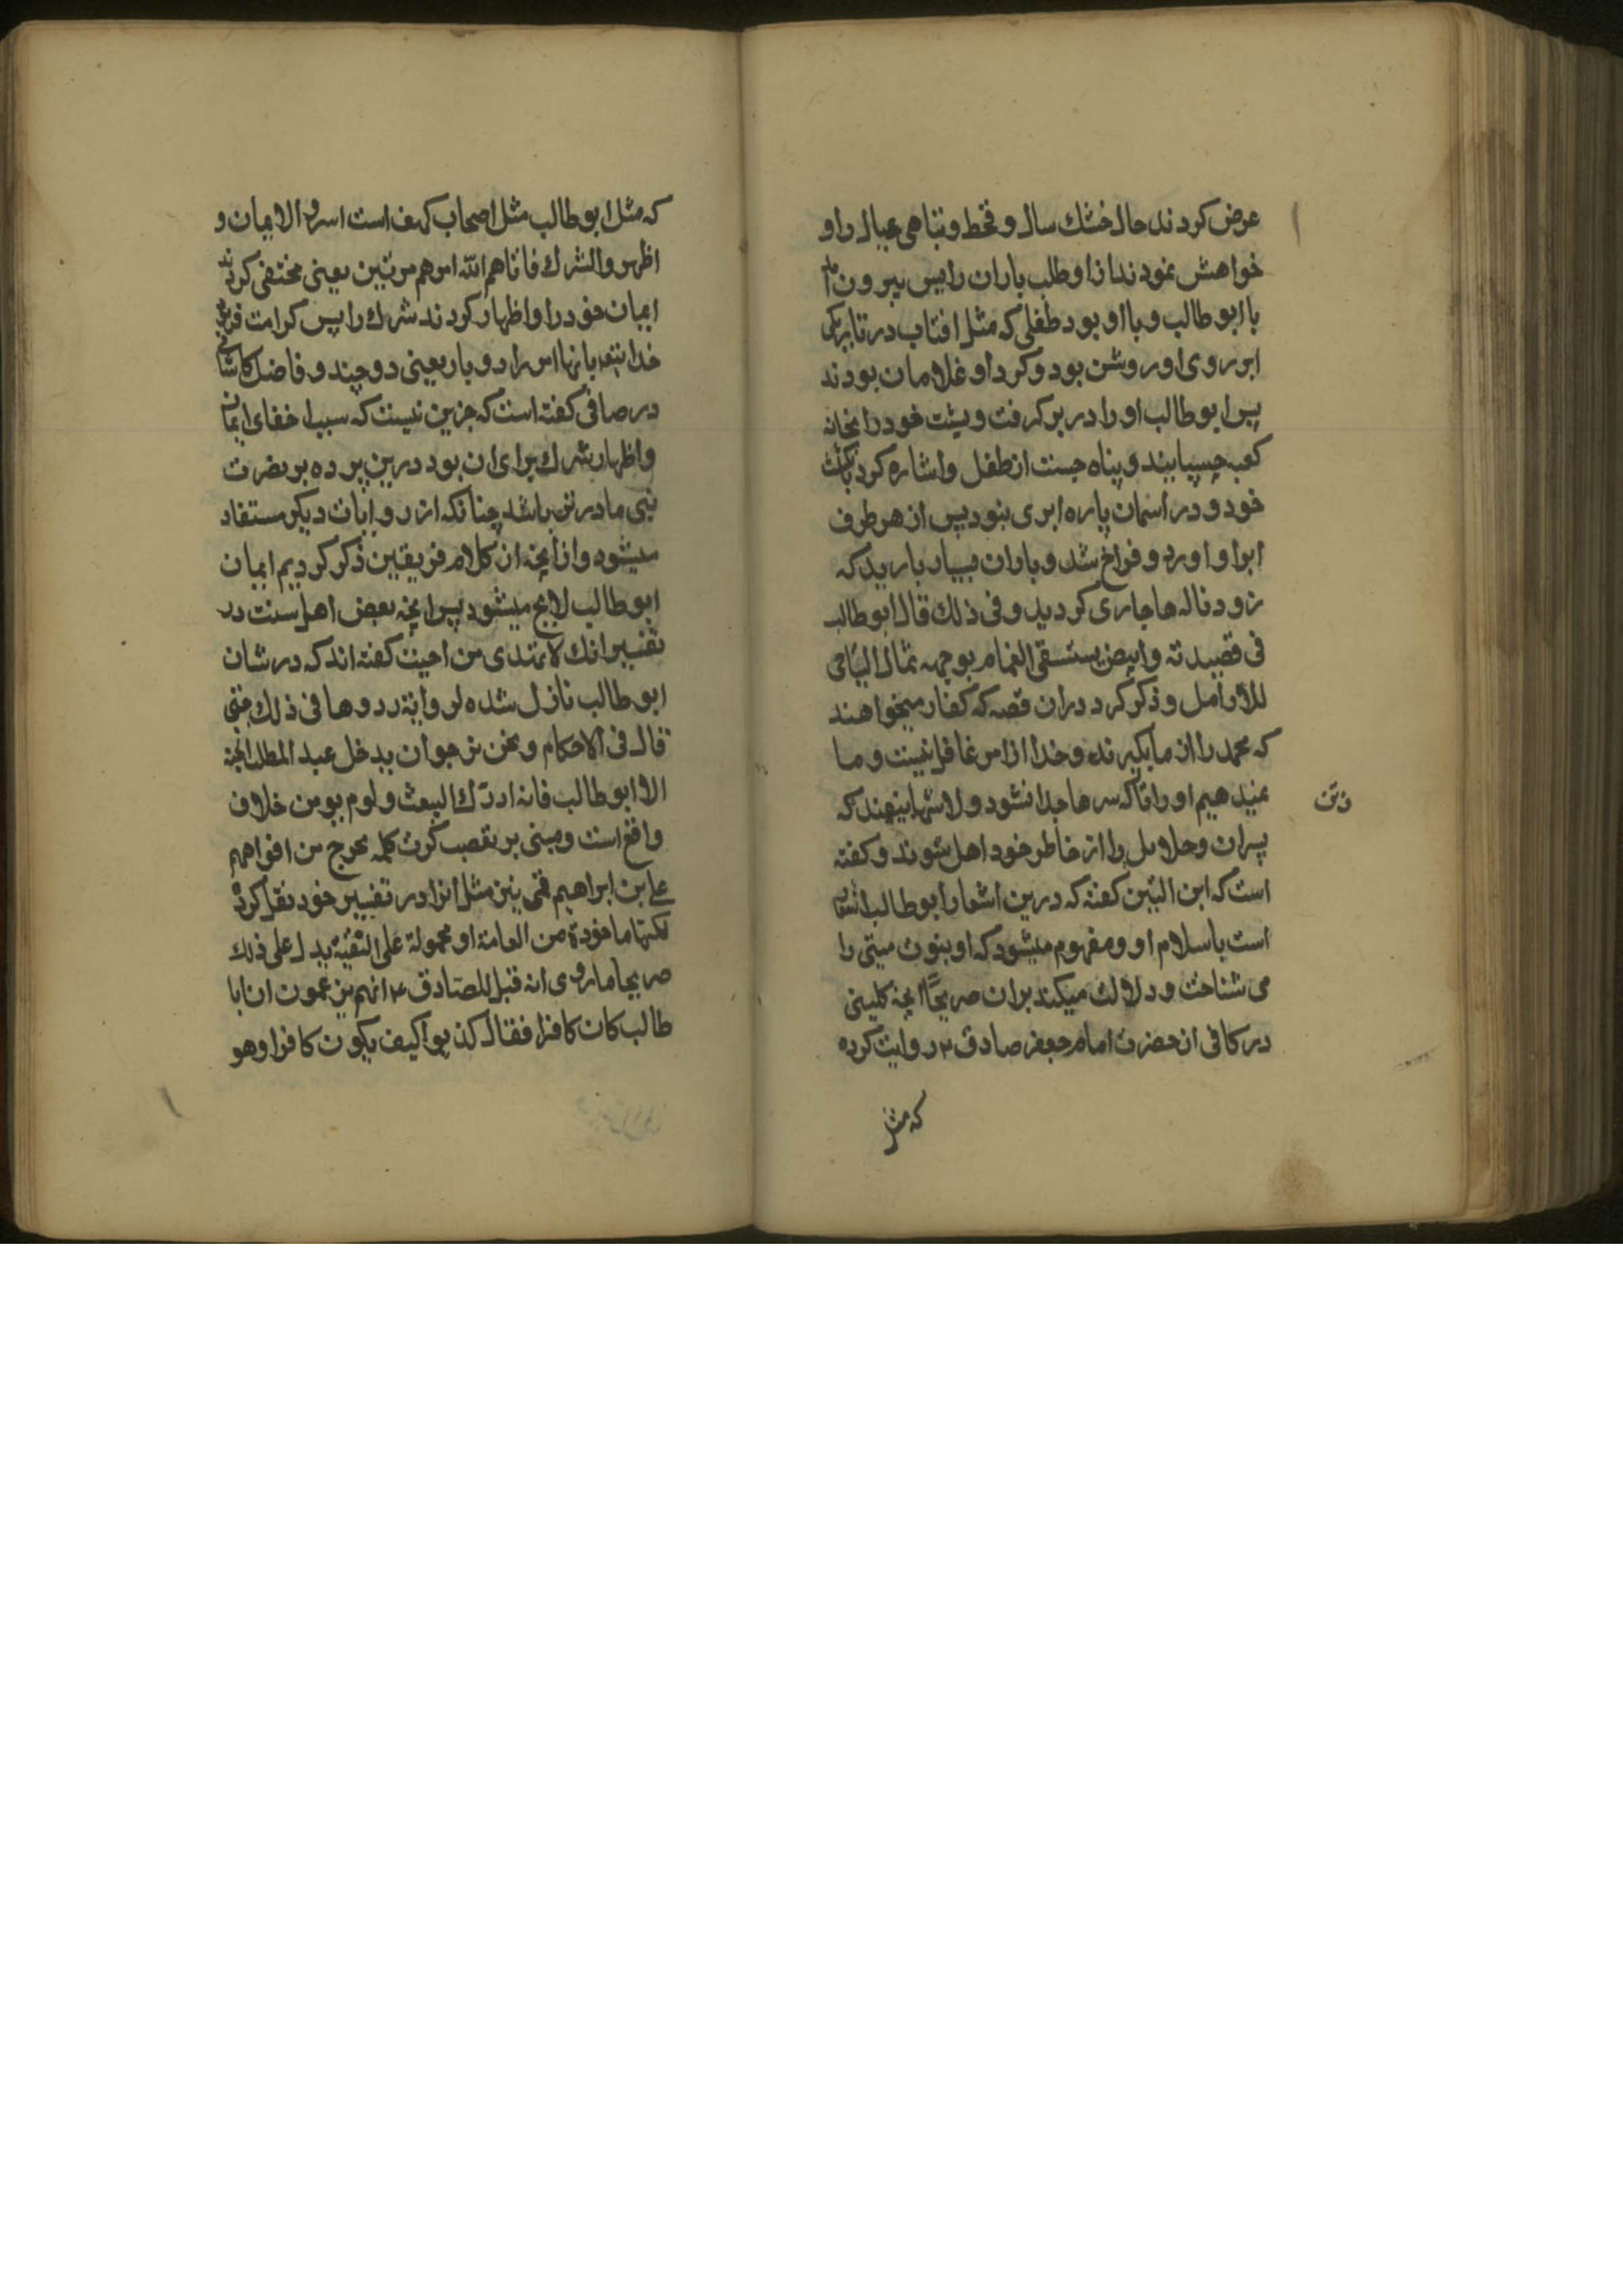 عرض کردند حال خشك سال و قحط و تباهی عیال را و
خواهش نمودند از او طلب باران را پس بیرون امد
با ابوطالب و با او بود طفلی که مثل افتاب در تاریکی
ابر روی او روشن بود و کرد او غلامان بودند
پس ابوطالب او را در بر کرفت و پشت خود را بخانه
کعبه چسپانید و پناه جست از طفل و اشاره کرد بانکشت
خود و در اسمان پاره ابری نبود پس از هر طرف
ابر او اورد و فراخ شد و باران بسیار بارید که
زود ناله ها جاری کردید و فی ذلك قال ابوطالب
فی قصیدته و ابیض یستسقی الغمام بوجهه ثمال الیتامی
للأرامل و ذکر کرد دران قصه که کفار میخواهند
که محمد را از ما بکیرند و خدا ازامر غافل نیست و ما
نمیدهیم او را تا که سرها جدا نشود و لاشها نیفتد که
پسران و حلایل را از خاطر خود اهل شوند و کفته
است که ابن التین کفته که درین اشعار ابوطالب اشعار
است باسلام او و مفهوم میشود که او بنوت میتی را
می شناخت و دلالت میکند بران صریحًا انچه کلینی
در کافی از حضرت امام جعفر صادق ع روایت کرده
که مثل
که مثل ابوطالب مثل اصحاب کهف است اسروا الایمان و
اظهروا الشرك فاتاهم الله اجرهم مرتین یعنی مختفی کردند
ایمان خود را و اظهار کردند شرك را پس کرامت فرمود
خدا بانها اجر را دو بار یعنی دو چند و فاضل کاشانی
در صافی کفته است که جزین نیست که سبب اخفای ایمان
و اظهار شرك برای ان بود درین پرده بر نصرت
نبی ما درتر باشد چنانکه از روایات دیکر مستفاد
میشود و از انچه از کلام فریقین ذکر کردیم ایمان
ابوطالب لایح میشود پس انچه بعض اهل سنت در
تفسیر انك لا تهتدی من احببت کفته اند که در شان
ابوطالب نازل شده لروایة رووها فی ذلك حتی
قال فی الاحکام و نحن نرجو ان یدخل عبد المطلب الجنة
الا ابوطالب فانه ادرك البعث و لم یومن خلاف
واقع است و مبنی بر تعصب کبرت کلمة تخرج من افواههم
علی بن ابراهیم قمی نیز مثل انرا در تفسیر خود نقل کرده
لکنها ماخوذة من العامة او محمولة علی التقیة یدل علی ذلك
صریحا ما روی انه قیل للصادق ع انهم یزعمون ان ابا
طالب کان کافرا فقال کذبوا کیف یکون کافرا و هو